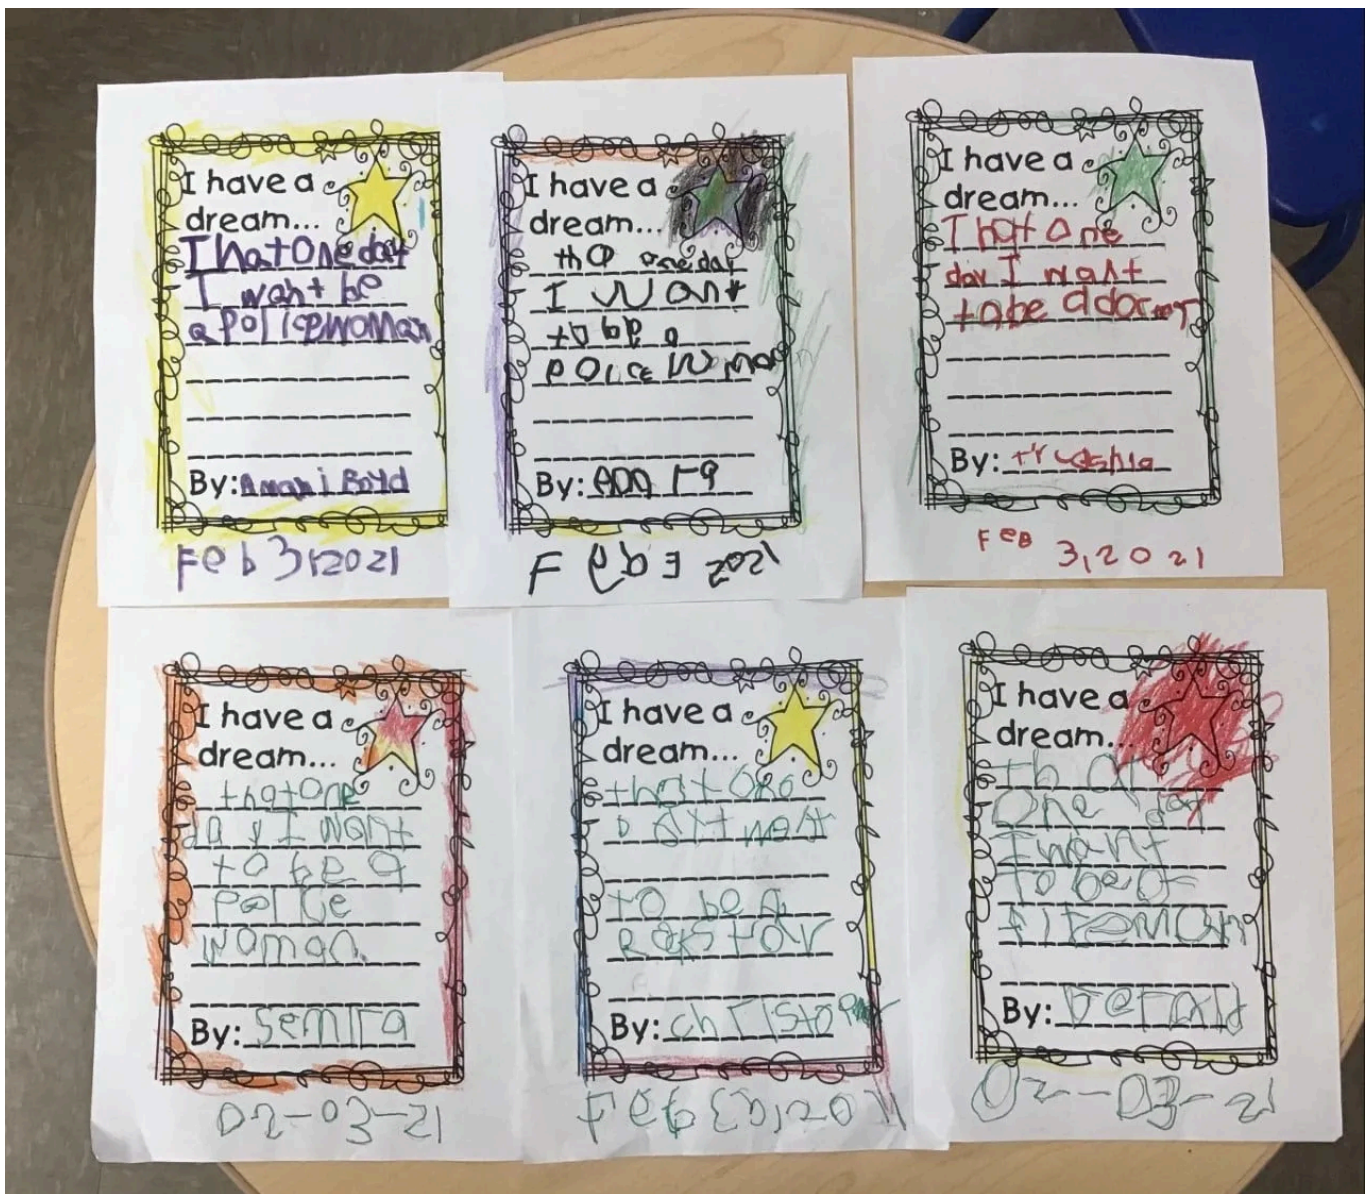 I have a
dream...
I hat One day
I want be
a policewoman
By: Amani Boyd
Feb 3, 2021
I have a
dream...
one day
I want
to be a
POLICE WOman
By:
Feb 3 2021
I have a
dream...
I hat One
day I want
to be a
By:
Feb 3, 2021
I have a
dream...
that One
day I want
to be a
police
woman.
By: Semira
02-03-21
I have a
dream...
that One
to be a
By: christopher
I have a
dream...
that
One day
I want
to be a
fireman
By:
02-03-21